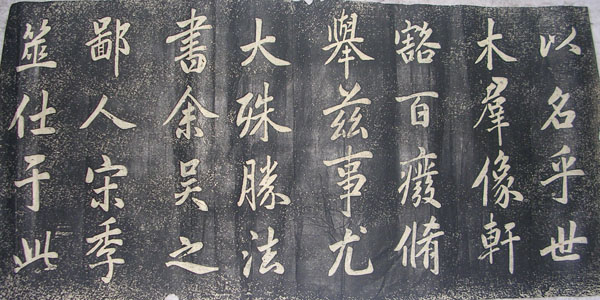 以名乎世
木羣像軒
豁百廢脩
舉茲事尤
大殊勝法
書余吴之
鄙人宋季
筮仕于此